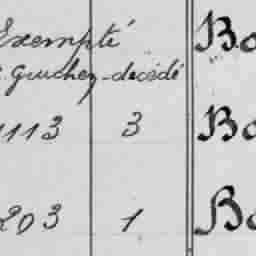 Exempté Bo
Guichez décédé
1113 3 Bo
203 1 Bo